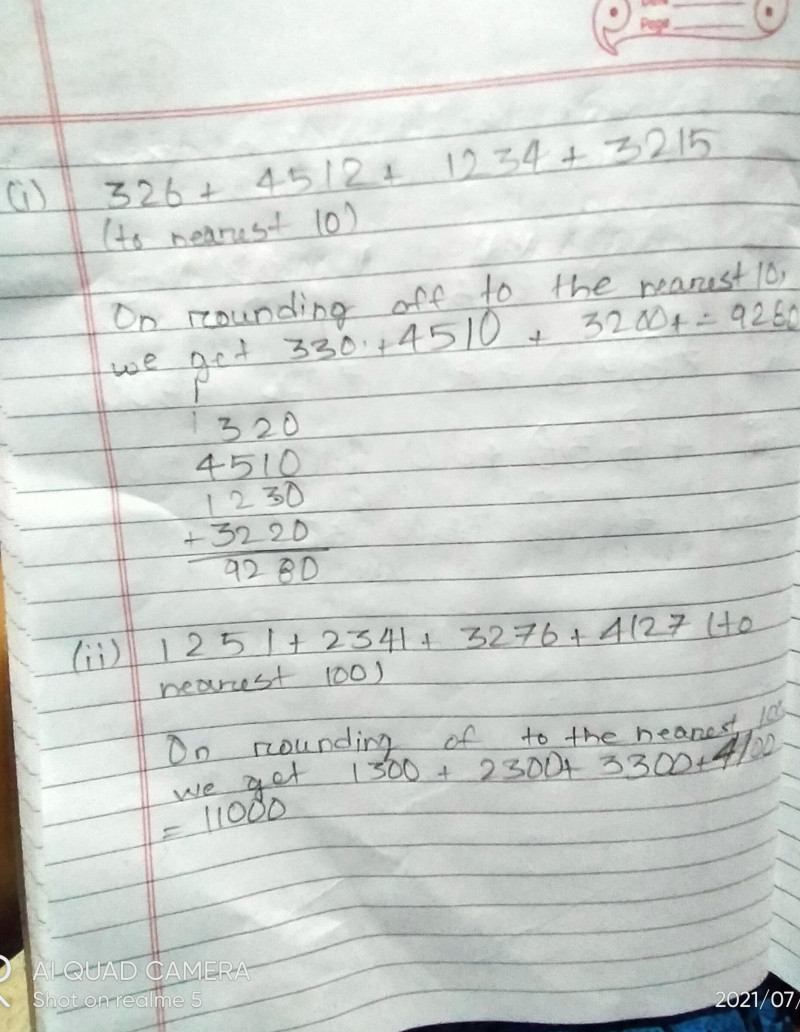 Page
(i) 326 + 4512 + 1234 + 3215
(to nearest 10)
On rounding off to the nearest 10,
we get 330 + 4510 + 3200+ = 9260
1 320
4510
1230
+ 3220
9280
(ii) 1251 + 2341 + 3276 + 4127 (to
nearest 100)
On rounding of to the nearest 100
we get 1300 + 2300+ 3300+4100
= 11000
AI QUAD CAMERA
Shot on realme 5
2021/07/